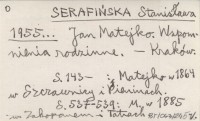 D
SERAFIŃSKA Stanisława
1955... Jan Matejko. Wspom-
nienia rodzinne. – Kraków.
S. 145– : Matejko w 1864
w Szczawnicy i Pieninach.
S. 537-539: My w 1885
w Zakopanem i Tatrach